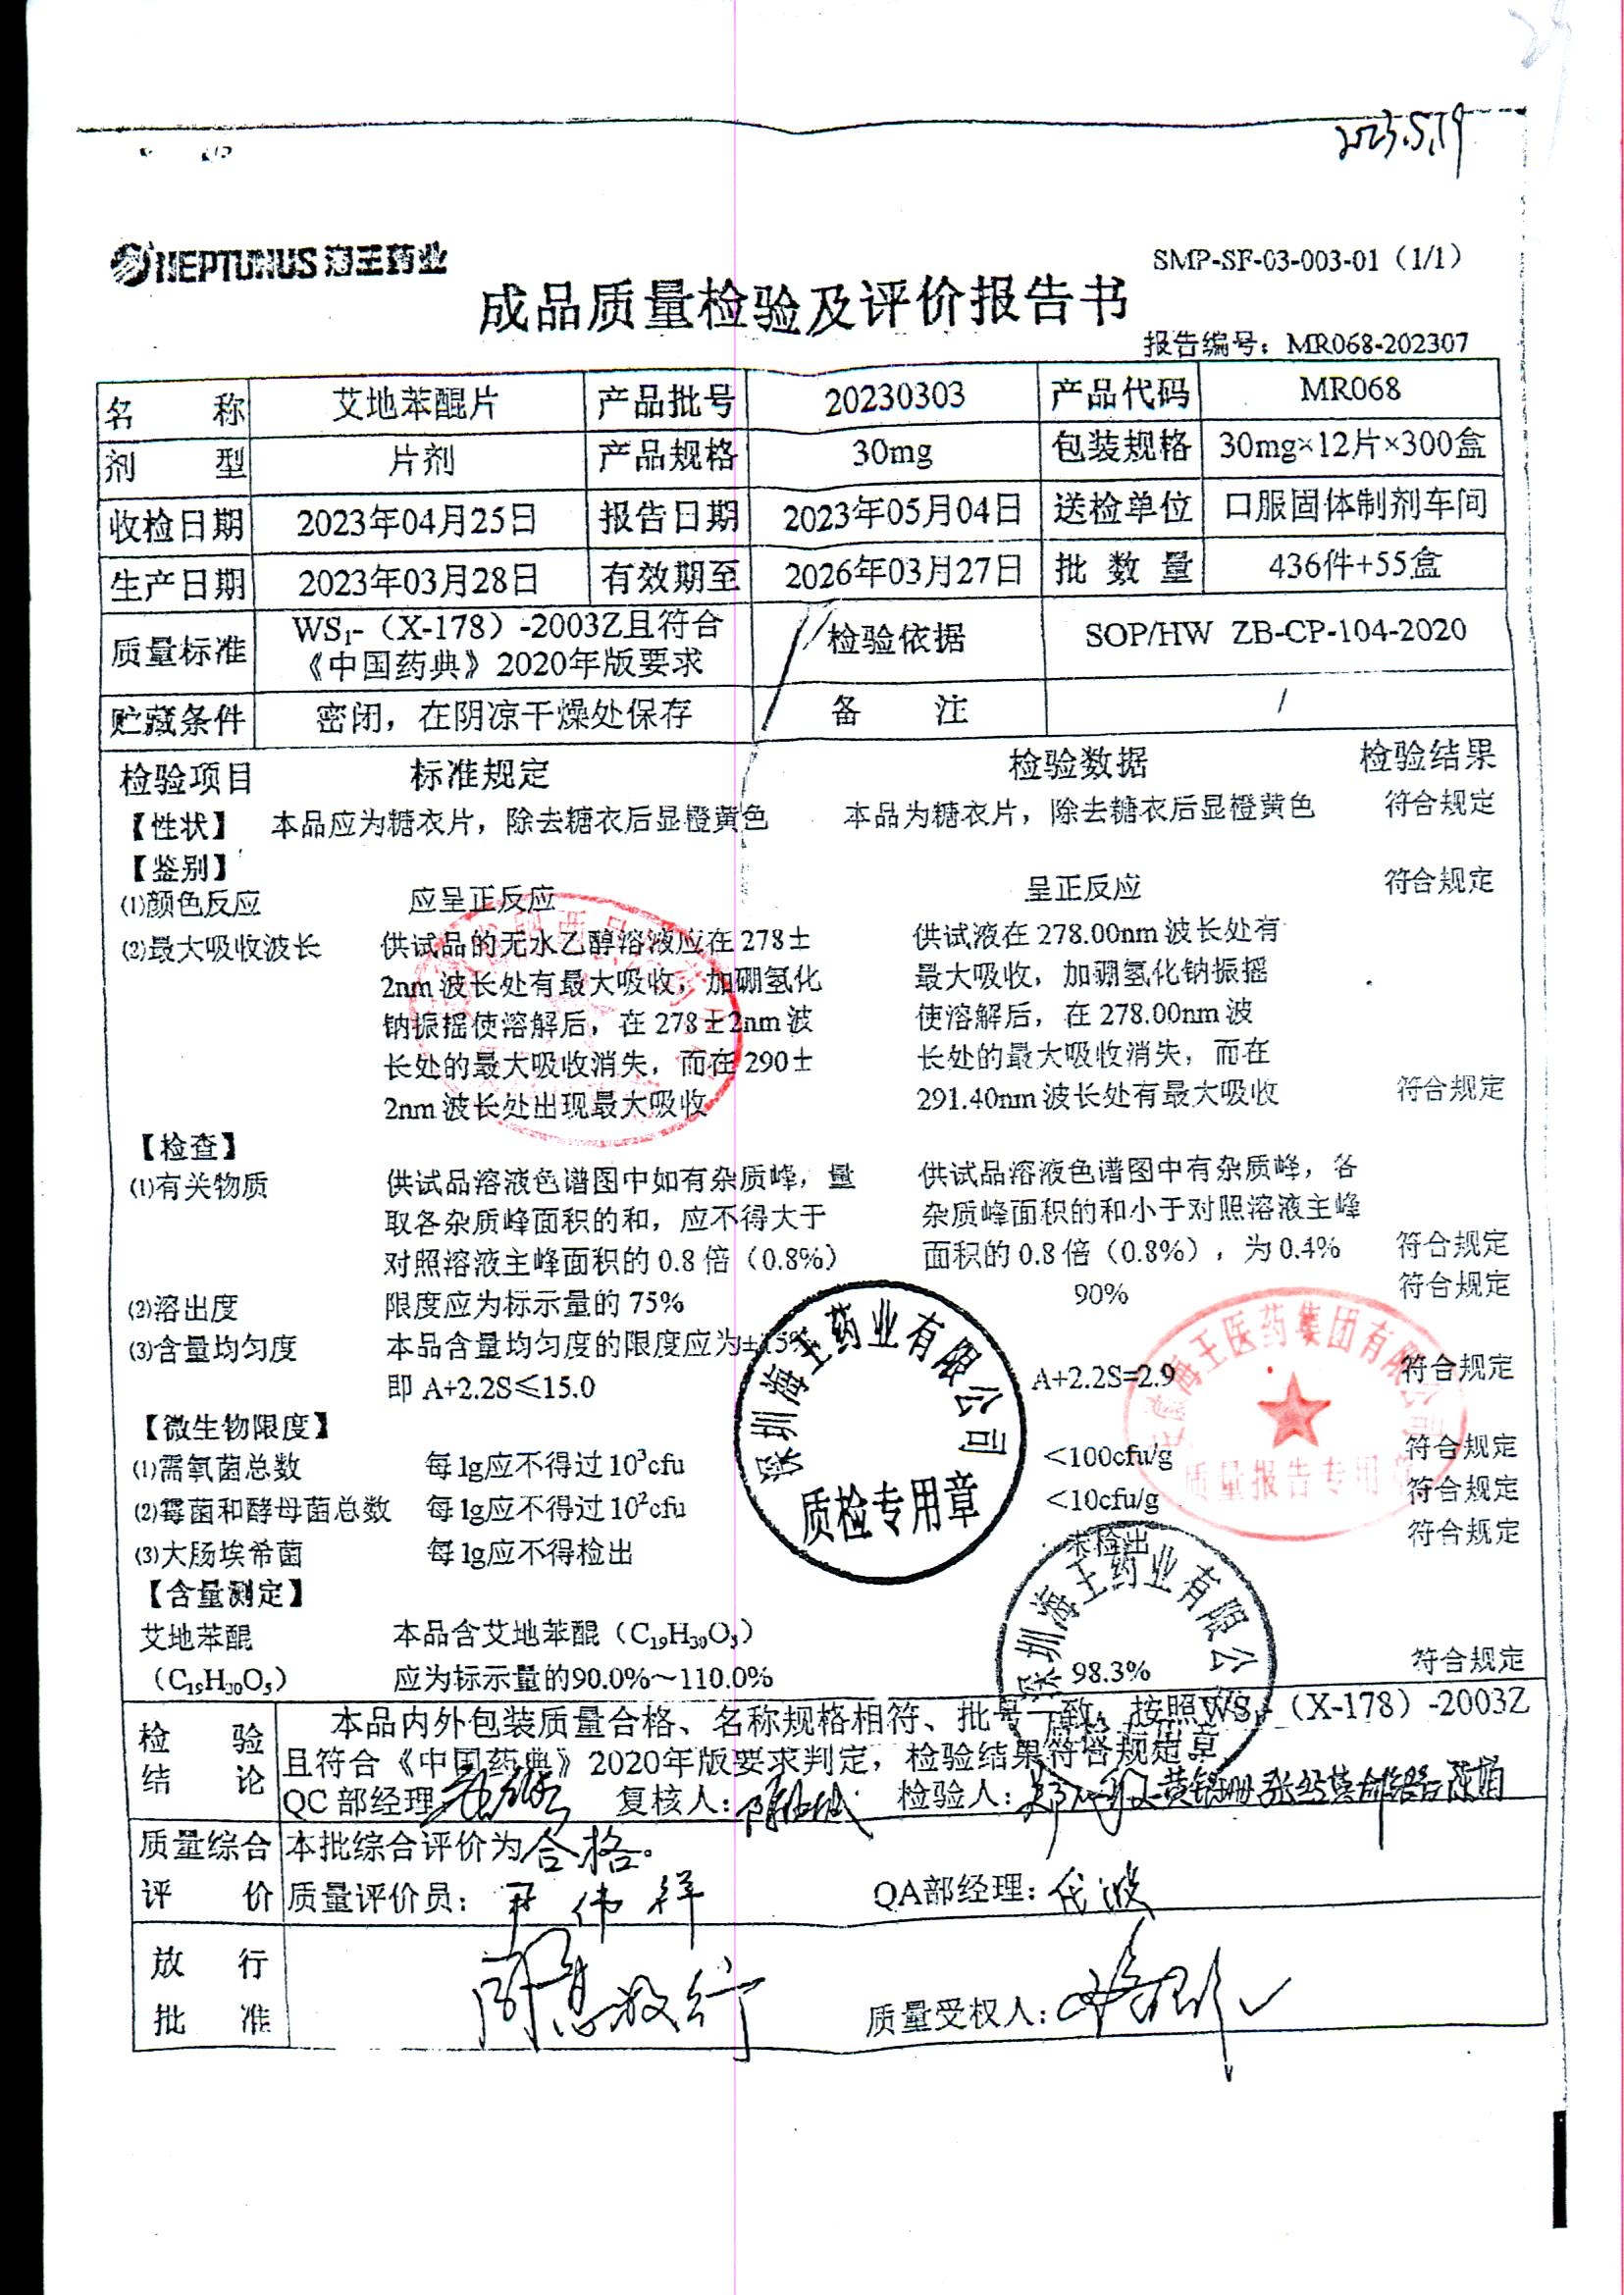 2023.5.19
NEPTUNUS 海王药业
SMP-SF-03-003-01（1/1）
成品质量检验及评价报告书
报告编号：MR068-202307
名 称 艾地苯醌片 产品批号 20230303 产品代码 MR068
剂 型 片剂 产品规格 30mg 包装规格 30mg×12片×300盒
收检日期 2023年04月25日 报告日期 2023年05月04日 送检单位 口服固体制剂车间
生产日期 2023年03月28日 有效期至 2026年03月27日 批 数 量 436件+55盒
质量标准 WS₁-（X-178）-2003Z且符合《中国药典》2020年版要求 检验依据 SOP/HW ZB-CP-104-2020
贮藏条件 密闭，在阴凉干燥处保存 备 注 /
检验项目 标准规定 检验数据 检验结果
【性状】 本品应为糖衣片，除去糖衣后显橙黄色 本品为糖衣片，除去糖衣后显橙黄色 符合规定
【鉴别】
⑴颜色反应 应呈正反应 呈正反应 符合规定
⑵最大吸收波长 供试品的无水乙醇溶液应在 278± 供试液在 278.00nm 波长处有
2nm 波长处有最大吸收，加硼氢化 最大吸收，加硼氢化钠振摇
钠振摇使溶解后，在 278±2nm 波 使溶解后，在 278.00nm 波
长处的最大吸收消失，而在 290± 长处的最大吸收消失，而在
2nm 波长处出现最大吸收 291.40nm 波长处有最大吸收 符合规定
【检查】
⑴有关物质 供试品溶液色谱图中如有杂质峰，量 供试品溶液色谱图中有杂质峰，各
取各杂质峰面积的和，应不得大于 杂质峰面积的和小于对照溶液主峰
对照溶液主峰面积的 0.8 倍（0.8%） 面积的 0.8 倍（0.8%），为 0.4% 符合规定
⑵溶出度 限度应为标示量的 75% 90% 符合规定
⑶含量均匀度 本品含量均匀度的限度应为±15%
即 A+2.2S≤15.0 A+2.2S=2.9 符合规定
【微生物限度】
⑴需氧菌总数 每 1g应不得过 10³cfu <100cfu/g 符合规定
⑵霉菌和酵母菌总数 每 1g应不得过 10²cfu <10cfu/g 符合规定
⑶大肠埃希菌 每 1g应不得检出 未检出 符合规定
【含量测定】
艾地苯醌 本品含艾地苯醌（C₁₉H₃₀O₅）
（C₁₉H₃₀O₅） 应为标示量的90.0%～110.0% 98.3% 符合规定
深圳海王药业有限公司
质检专用章
海王医药集团有限公司
质量报告专用章
深圳海王药业有限公
检 验 结 论 本品内外包装质量合格、名称规格相符、批号一致，按照WS₁-（X-178）-2003Z
且符合《中国药典》2020年版要求判定，检验结果符合规定
QC 部经理 复核人： 检验人：
质量综合 本批综合评价为合格。
评 价 质量评价员：尹伟祥 QA部经理：代波
放 行 同意放行
批 准 质量受权人：